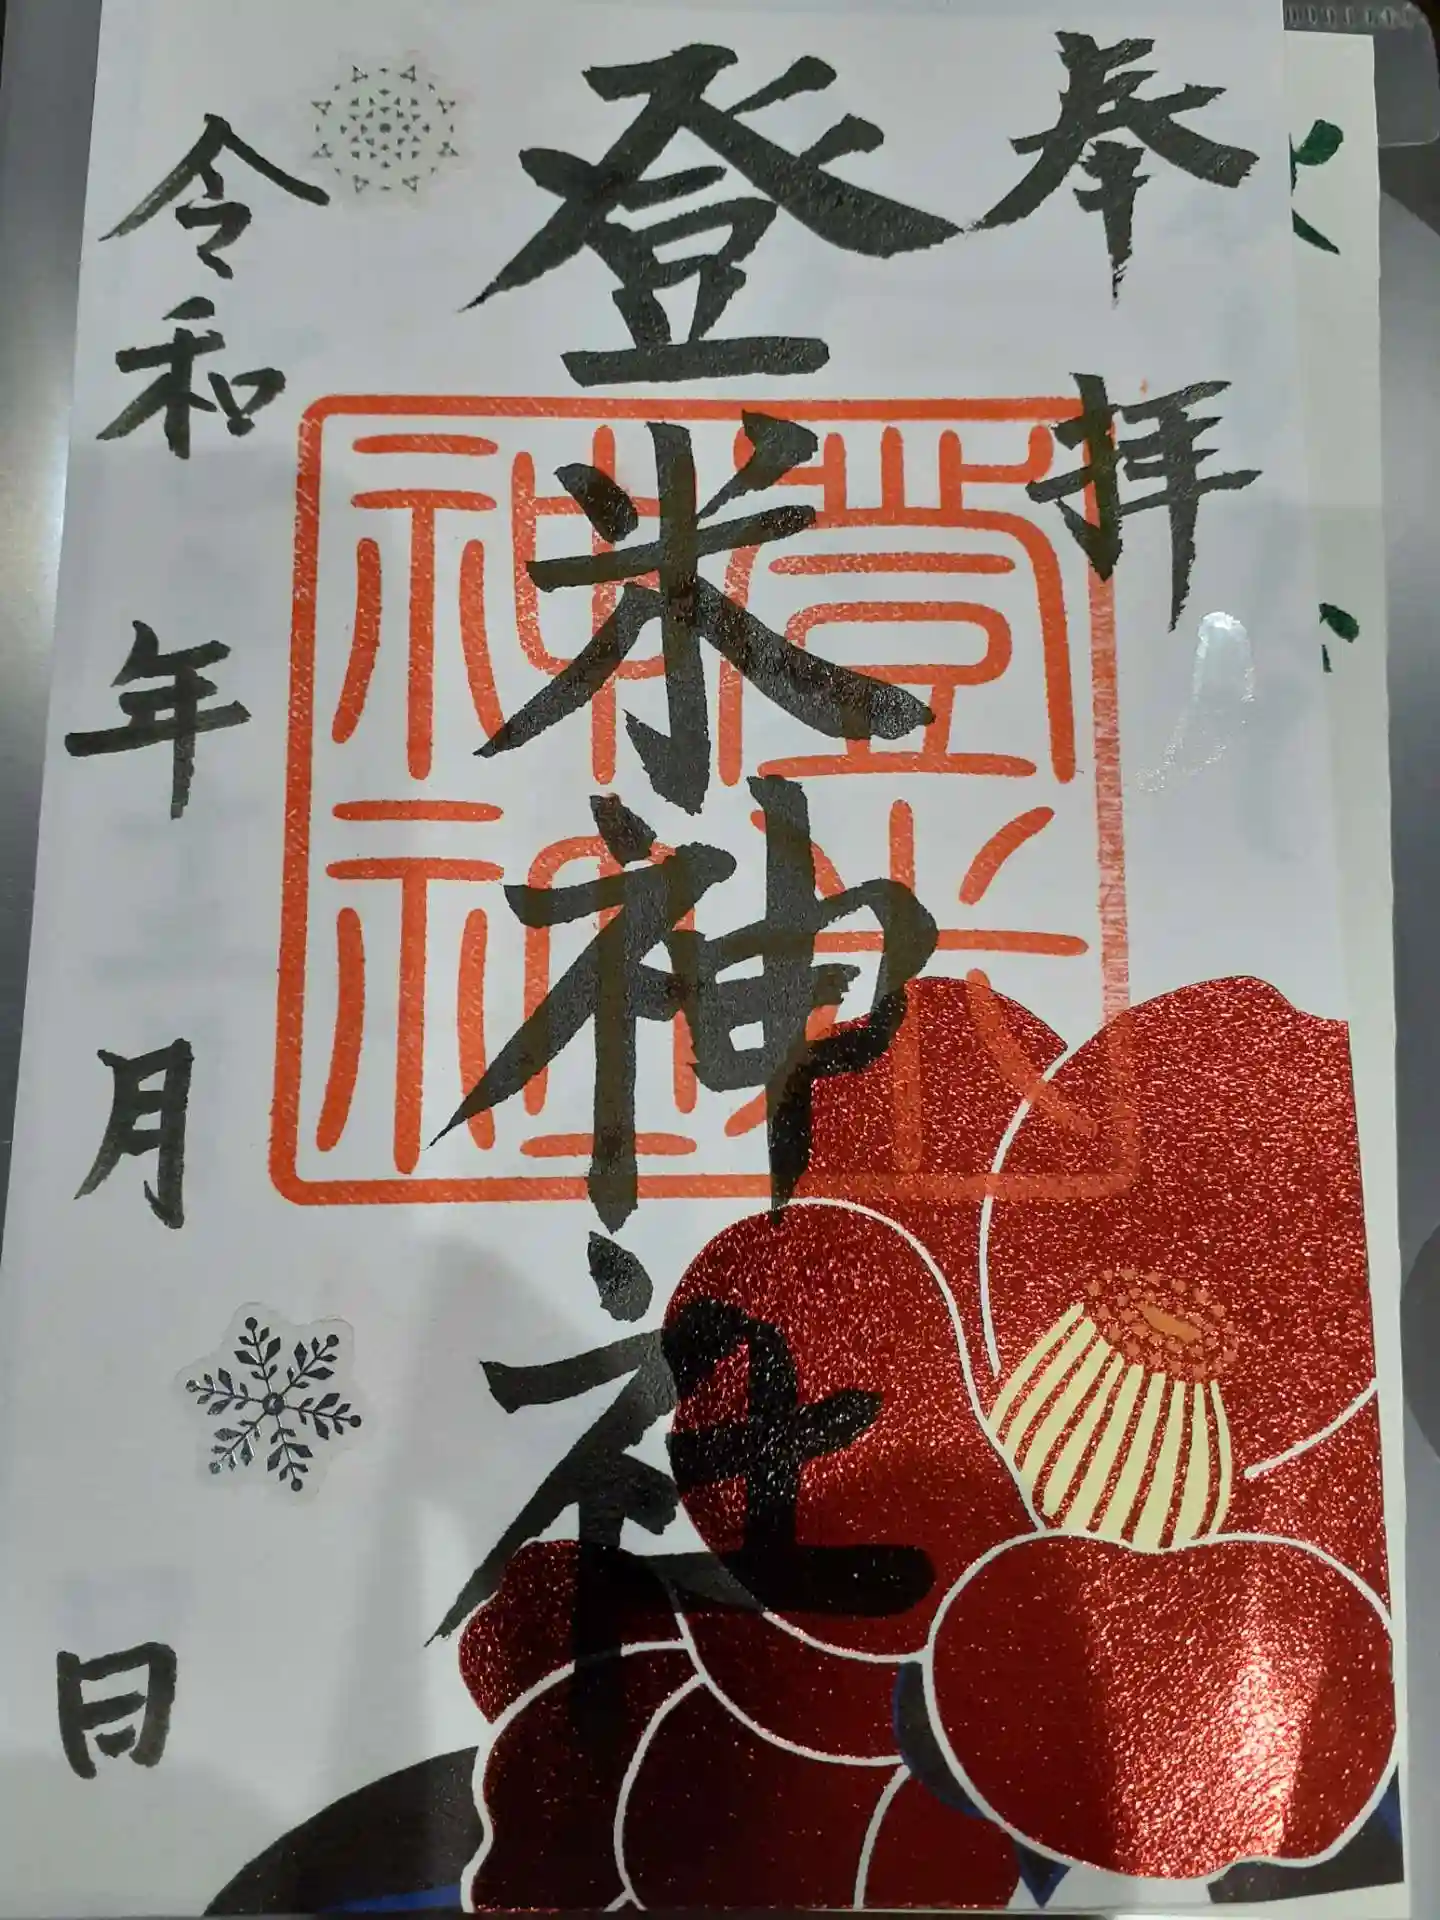 奉拝
登米神社
登米
神社
令和 年 月 日